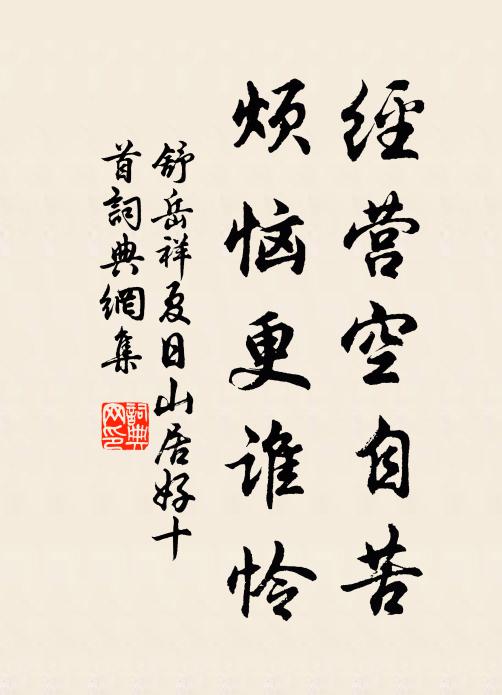 經营空自苦
烦恼更谁怜
舒岳祥夏日山居好十
首詞典網集
詞典
网印